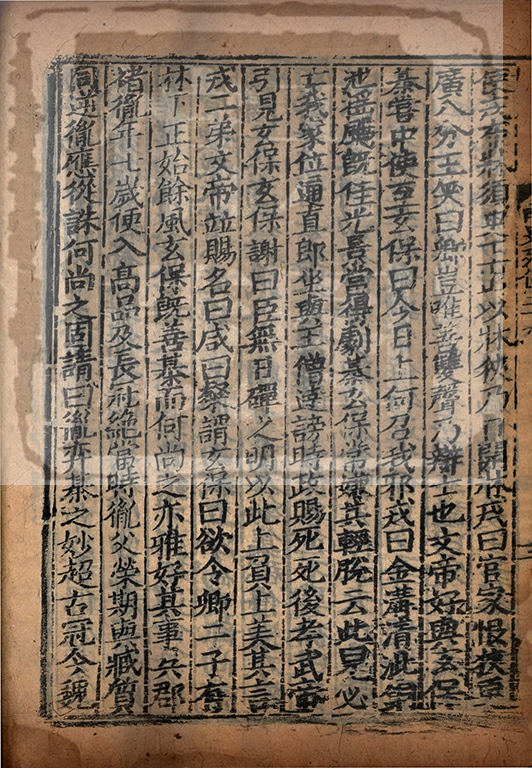 使戎布牀須臾王出以牀狹乃自開牀戎曰官家恨狹更
廣八分王笑曰卿豈唯善雙聲乃辯士也文帝好與玄保
棊嘗中使至玄保曰今日上何召我邪戎曰金溝清泚銅
池搖颺既佳光景當得劇棊玄保常嫌其輕脫云此兒必
亡我家位通直郎坐與王僧達謗時政賜死死後孝武帝
引見玄保玄保謝曰臣無日磾之明以此上負上美其言
戎二弟文帝並賜名曰咸曰粲謂玄保曰欲令卿二子有
林下正始餘風玄保既善棊而何尚之亦雅好其事吳郡
褚胤年七歲便入高品及長冠絕當時胤父榮期與臧質
同逆胤應從誅何尚之固請曰胤弈棊之妙超古冠今魏